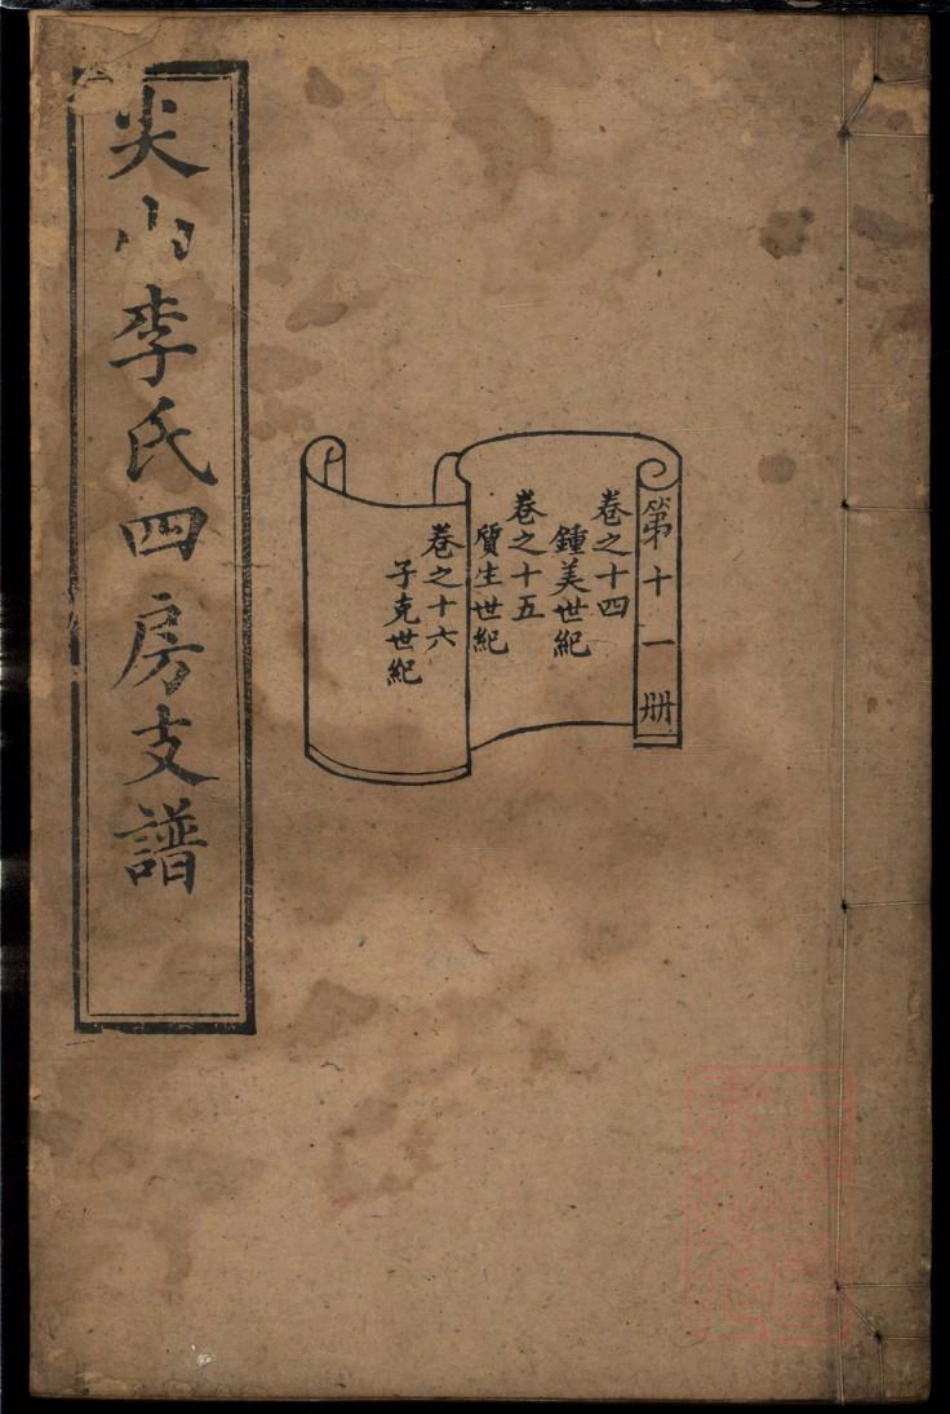 第十一册
卷之十四
鍾美世紀
卷之十五
質生世紀
卷之十六
子克世紀
尖山李氏四房支譜